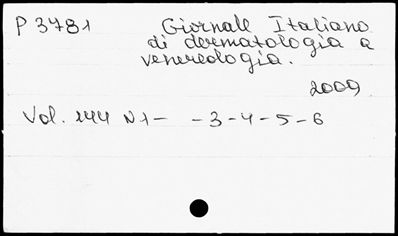 P 3781 Giornale Italiano
di dermatologia e
venereologia.
2009
Vol. 144 N1- -3-4-5-6